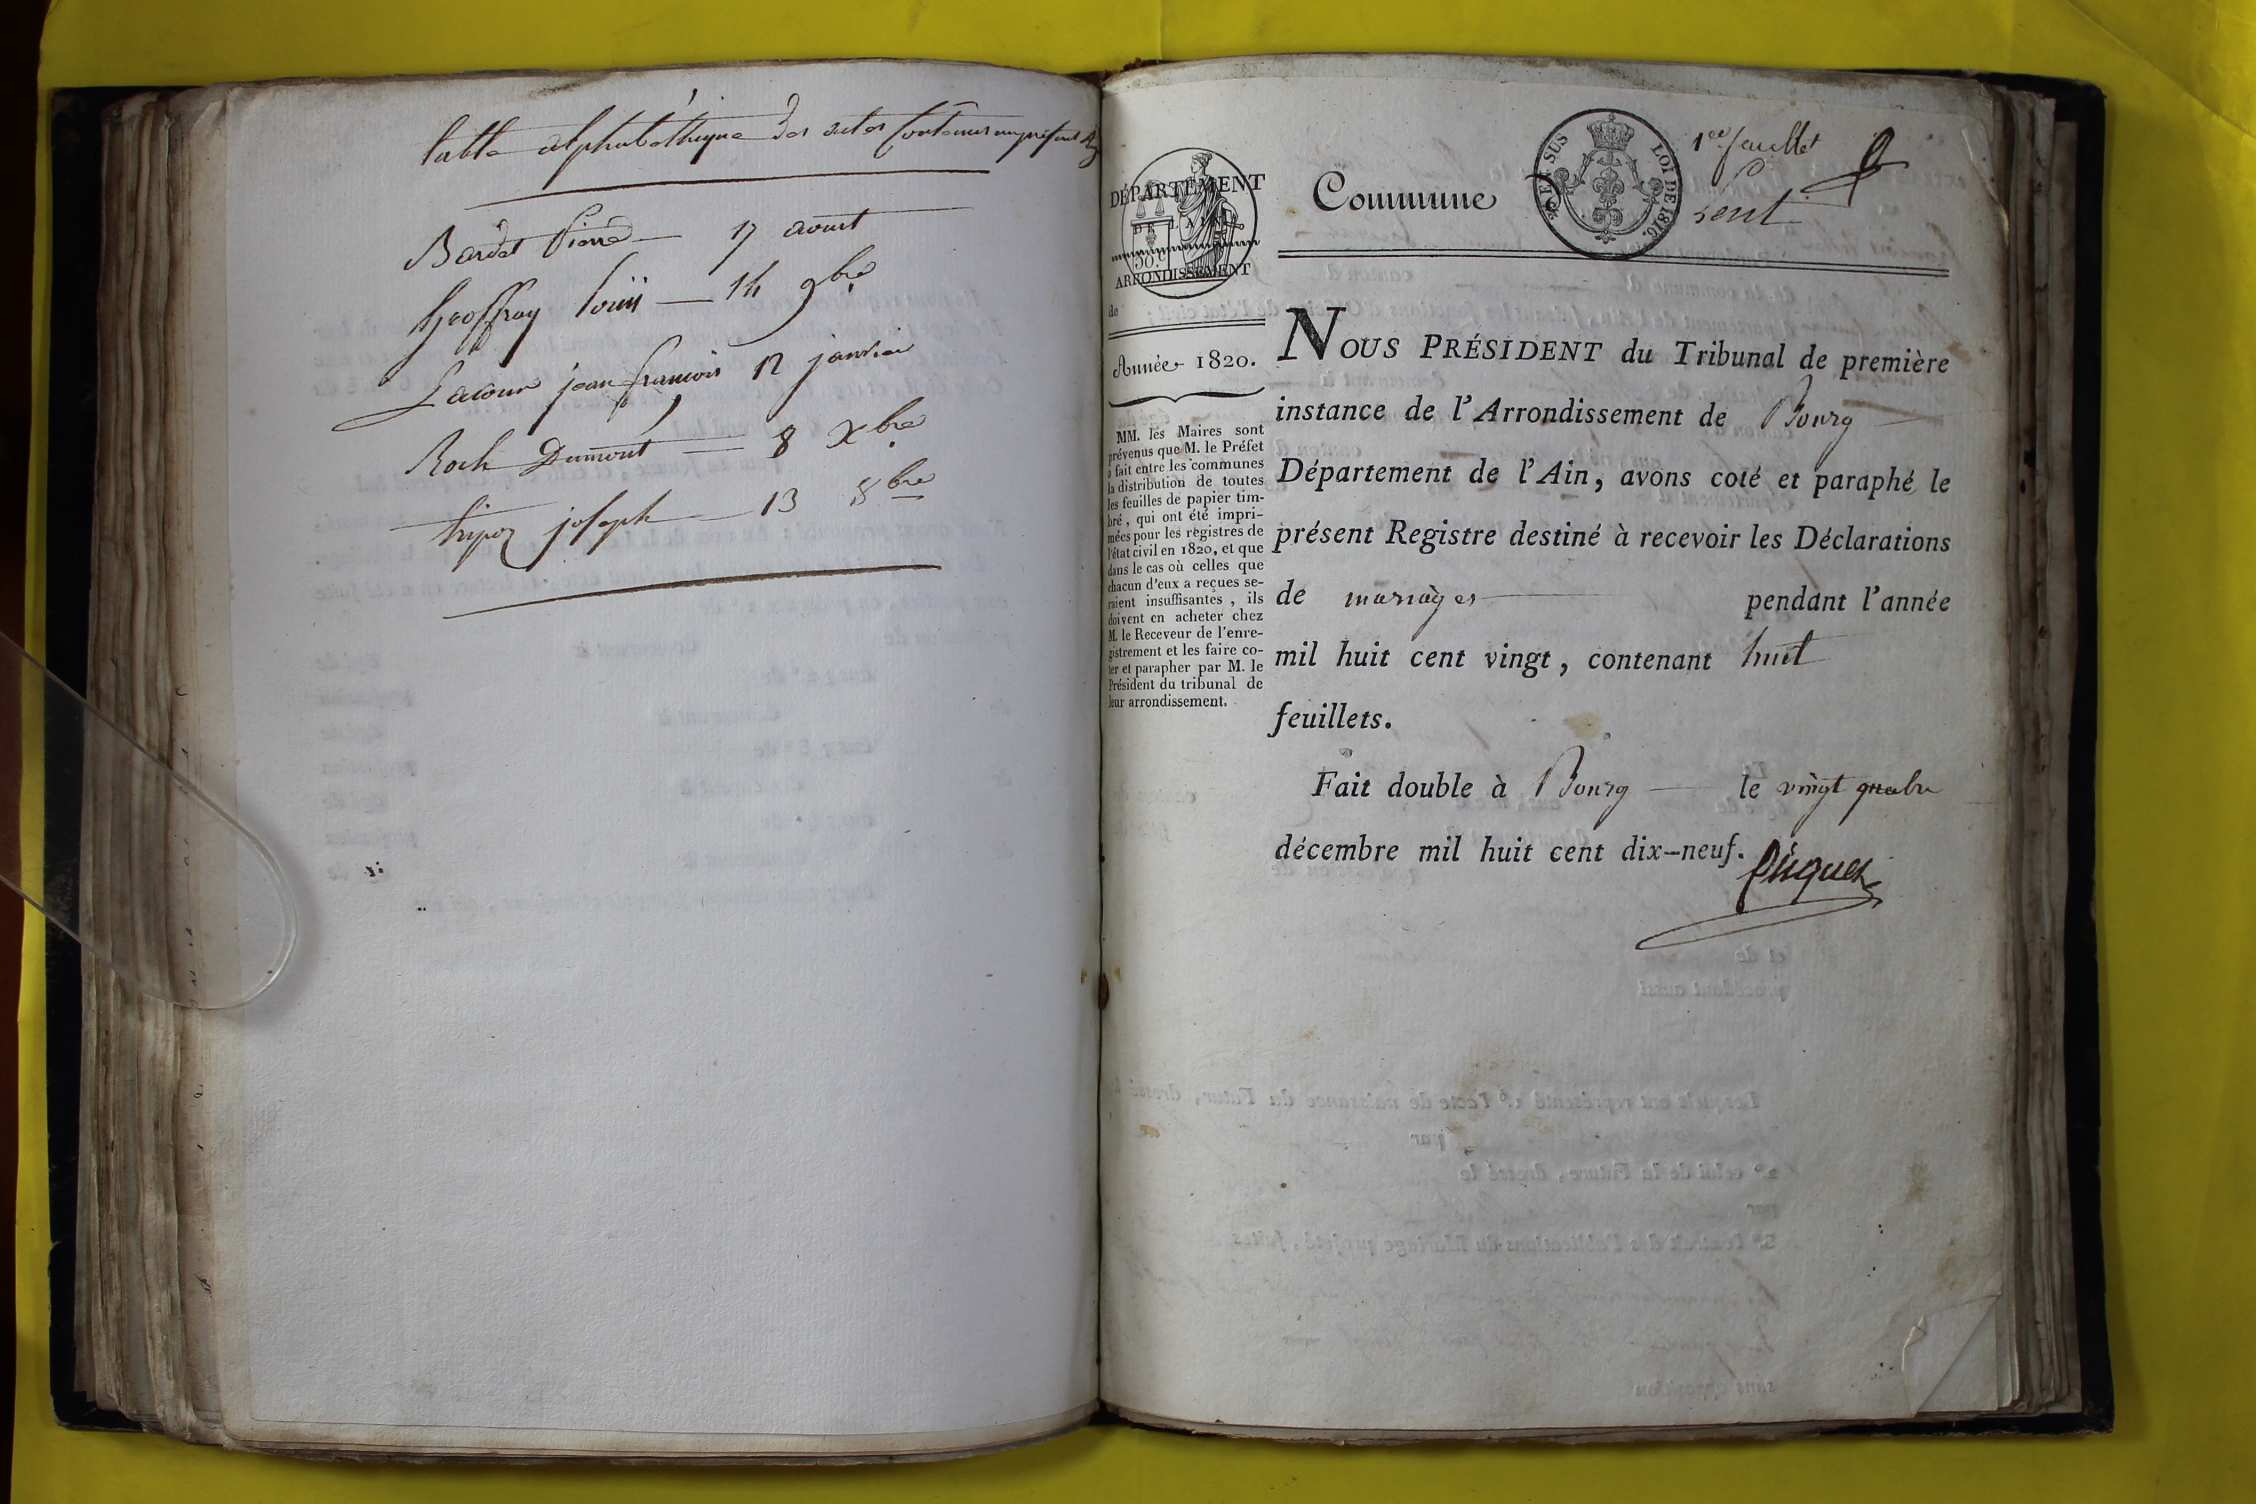 table alphabéthique des actes contenus au présent
Bardet Pierre — 17 aoust
Geoffray Louis — 14 9bre
Lacour jean françois 12 janvier
Roch Dumont — 8 Xbre
tripoz joseph — 13 8bre
1er feuillet
Commune
DÉPARTEMENT
DE L'AIN
ARRONDISSEMENT
de
LOI DE 1816.
Année 1820.
MM. les Maires sont
prévenus que M. le Préfet
a fait entre les communes
la distribution de toutes
les feuilles de papier tim-
bré, qui ont été impri-
mées pour les registres de
l'état civil en 1820, et que
dans le cas où celles que
chacun d'eux a reçues se-
raient insuffisantes, ils
doivent en acheter chez
M. le Receveur de l'enre-
gistrement et les faire co-
ter et parapher par M. le
Président du tribunal de
leur arrondissement.
NOUS PRÉSIDENT du Tribunal de première
instance de l'Arrondissement de Bourg
Département de l'Ain, avons coté et paraphé le
présent Registre destiné à recevoir les Déclarations
de mariages pendant l'année
mil huit cent vingt, contenant huit
feuillets.
Fait double à Bourg le vingt quatre
décembre mil huit cent dix-neuf.